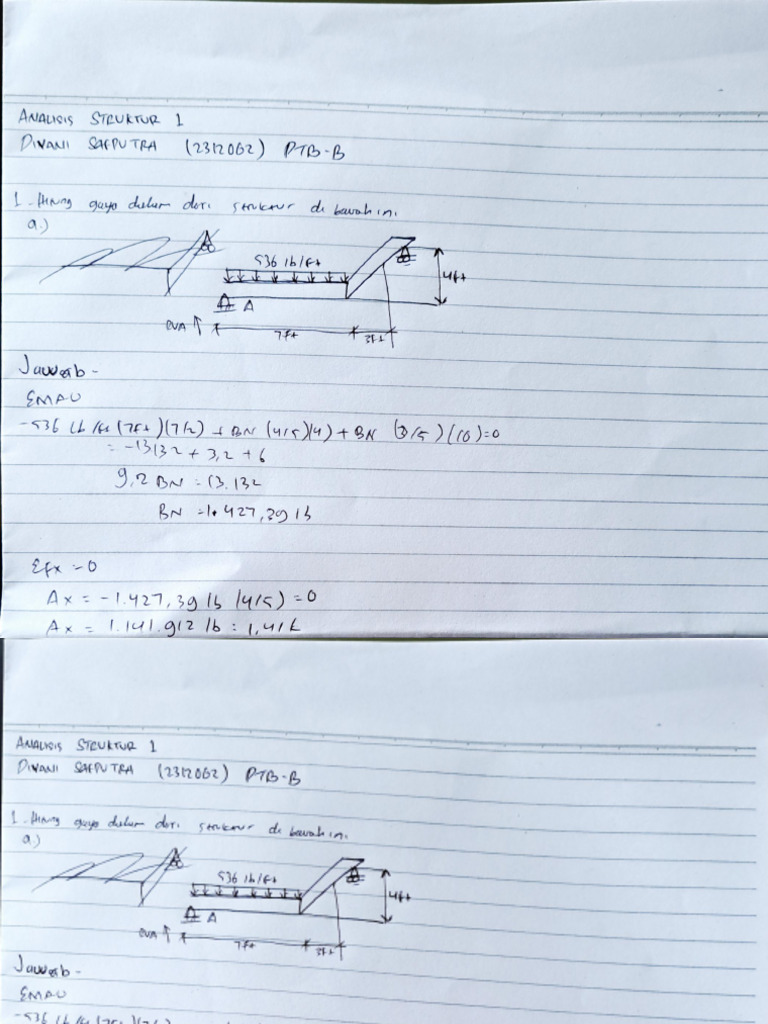 ANALISIS STRUKTUR 1
DIVANI SAEPUTRA (2312062) PTB-B
1. Hitung gaya dalam dari struktur di bawah ini.
a.)
536 lb/ft
4ft
A
RVA
7ft
3ft
Jawab -
ΣMA
-536 lb/ft (7ft)(7/2) + BN (4/5)(4) + BN (3/5)(10)=0
= -13132 + 3,2 + 6
9,2 BN = 13.132
BN = 1.427,39 lb
Σfx = 0
Ax = -1.427,39 lb (4/5) = 0
Ax = 1.141.912 lb = 1,41 k
ANALISIS STRUKTUR 1
DIVANI SAEPUTRA (2312062) PTB-B
1. Hitung gaya dalam dari struktur di bawah ini.
a.)
536 lb/ft
4ft
A
RVA
7ft
3ft
Jawab -
ΣMA